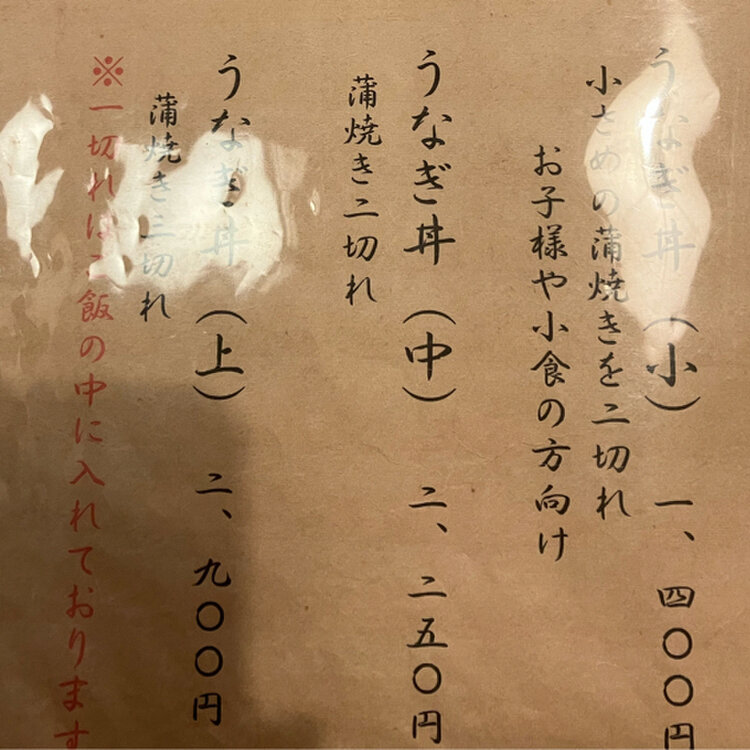 うなぎ丼（小）　一、四〇〇円
小さめの蒲焼きを二切れ
お子様や小食の方向け
うなぎ丼（中）　二、二五〇円
蒲焼き二切れ
うなぎ丼（上）　二、九〇〇円
蒲焼き三切れ
※一切れはご飯の中に入れております